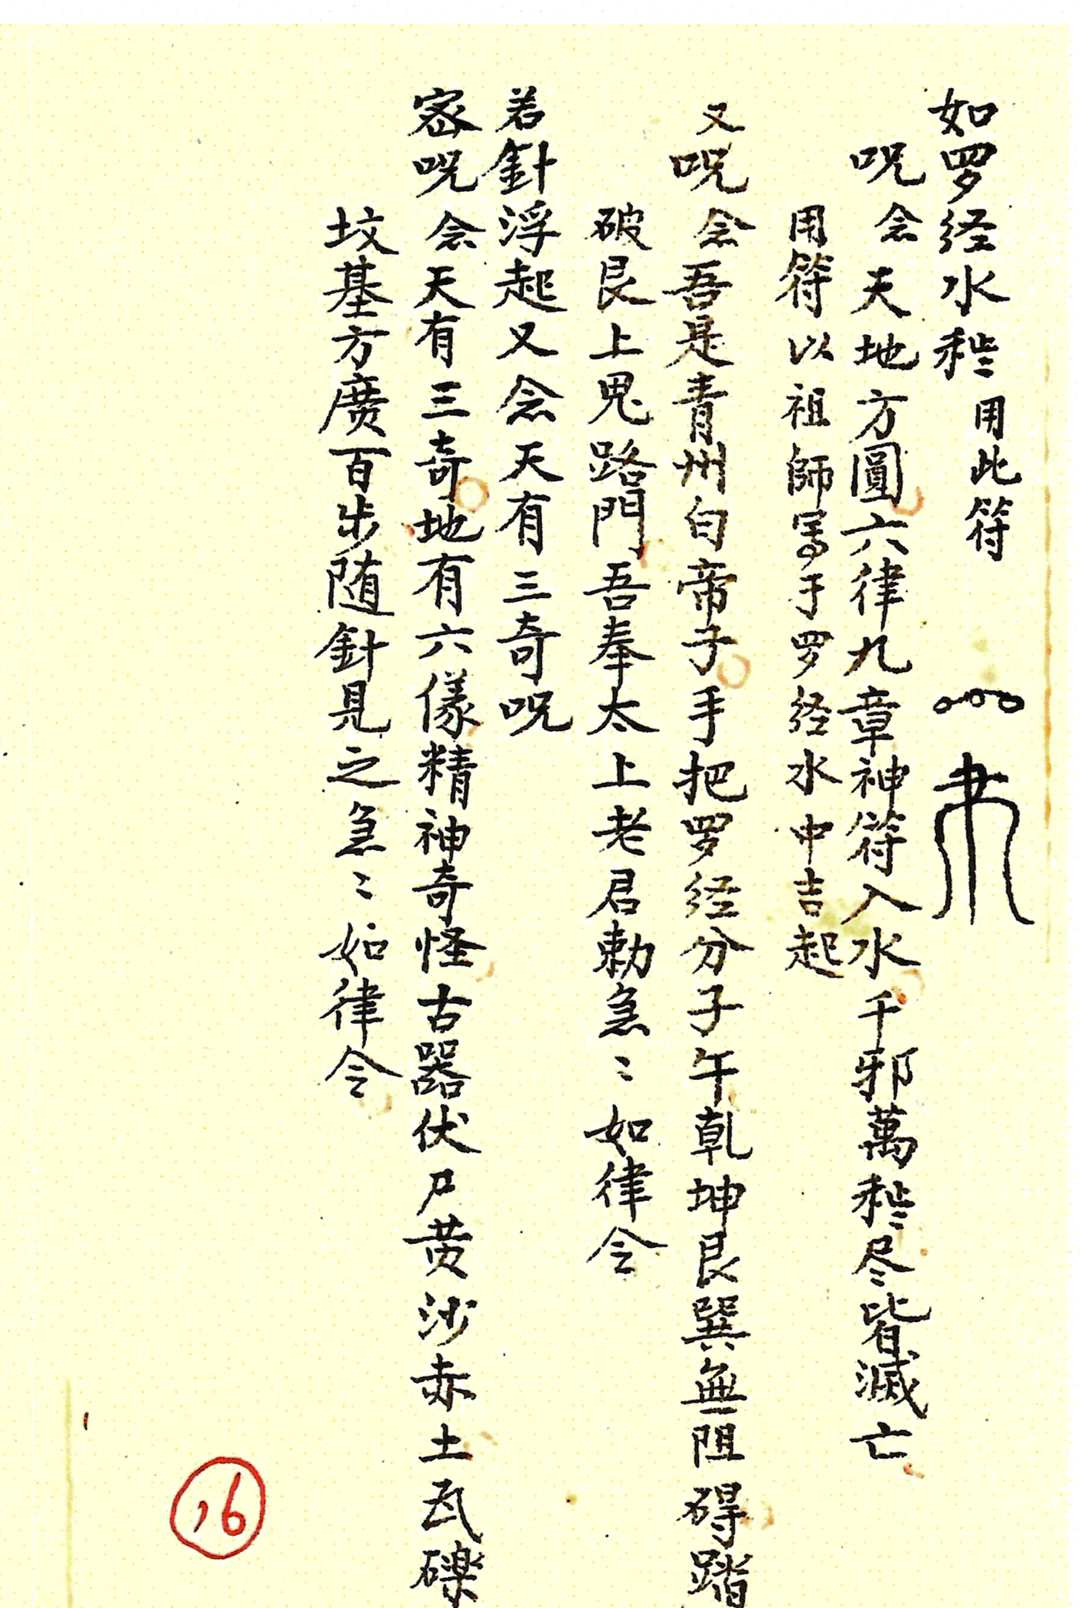 如罗经水秽用此符
呪念天地方圓六律九章神符入水千邪萬秽尽皆滅亡
用符以祖師寫于罗经水中吉起
又呪念吾是青州白帝子手把罗经分子午乾坤艮巽無阻碍踏
破艮上鬼路門吾奉太上老君勅急〻如律令
若針浮起又念天有三奇呪
密呪念天有三奇地有六儀精神奇怪古器伏尸黄沙赤土瓦礫
坟基方廣百步随針見之急〻如律令
16